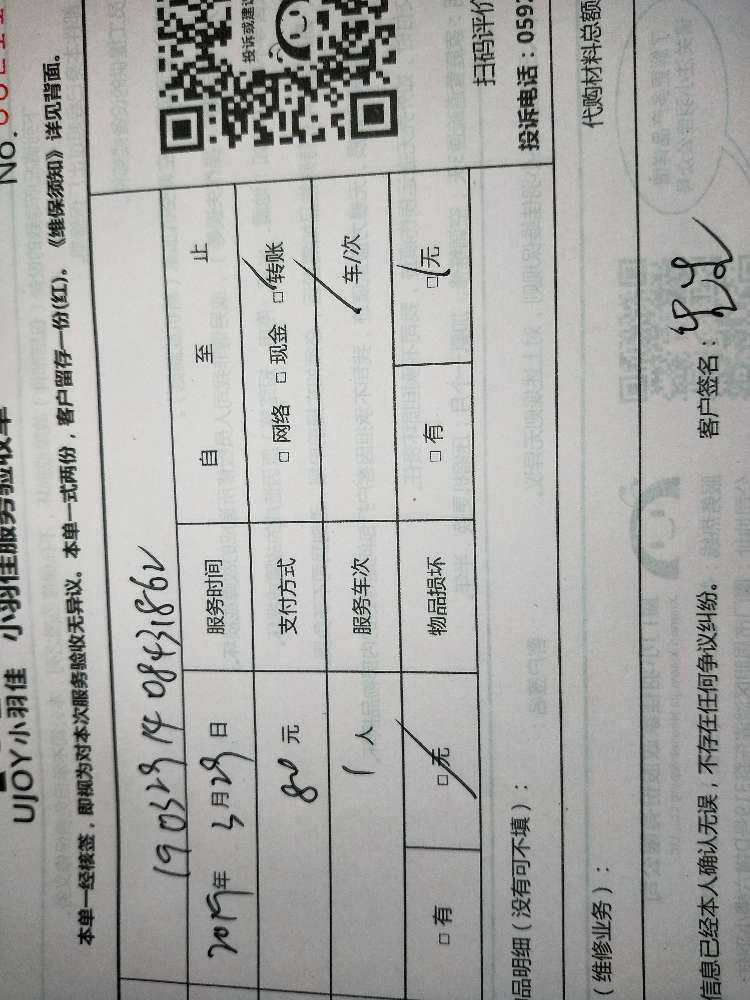 No.
UJOY小羽佳 小羽佳服务验收单
本单一经核签，即视为对本次服务验收无异议。本单一式两份，客户留存一份(红)。《维保须知》详见背面。
投诉或建议
19032914 08431862
2019年 3月29日 服务时间 自 至 止
80 元 支付方式 □网络 □现金 □转账
1 人 服务车次 车/次
□有 □无 物品损坏 □有 □无
扫码评价
投诉电话：059
品明细（没有可不填）：
（维修业务）： 代购材料总额
信息已经本人确认无误，不存在任何争议纠纷。 客户签名：